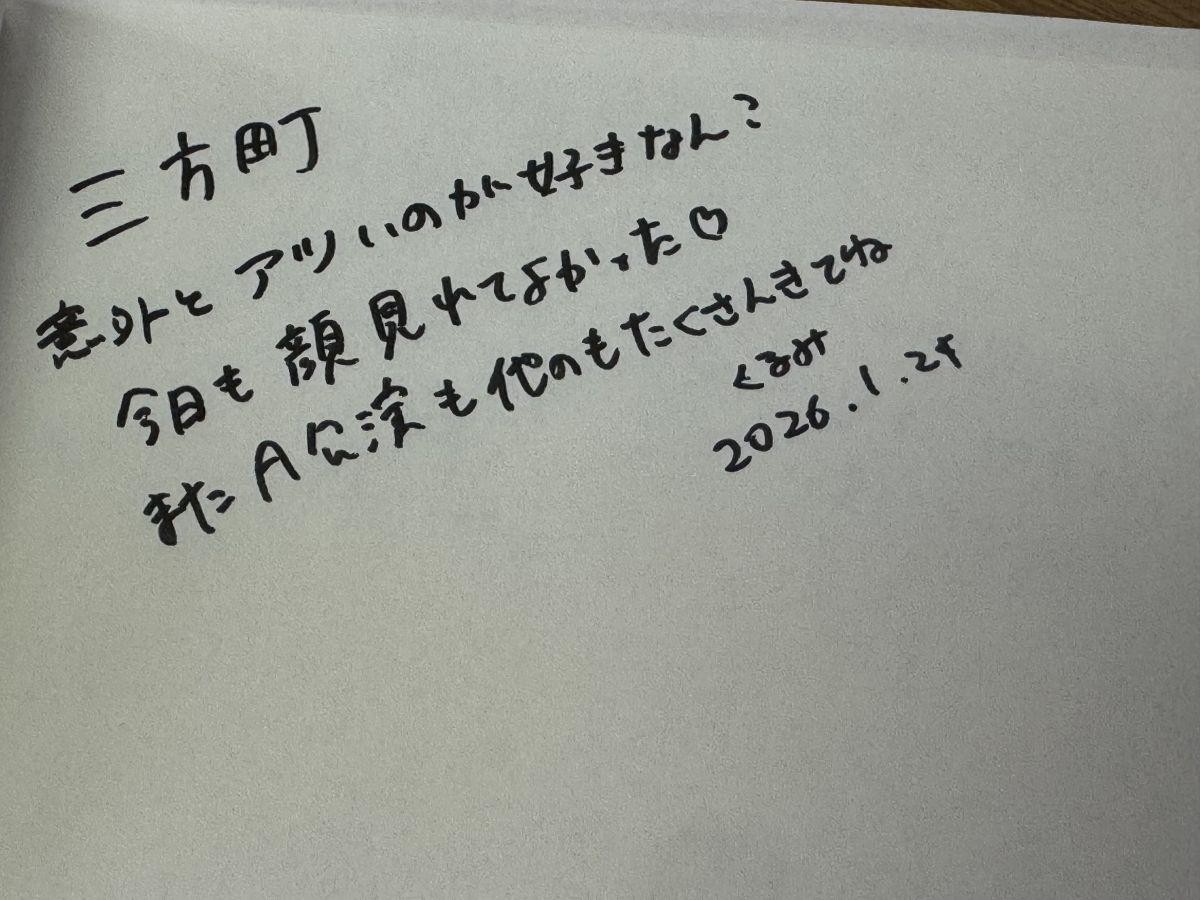 三方町
意外とアツいのが好きなん?
今日も顔見れてよかった♡
またA公演も他のもたくさんきてね
くるみ
2026.1.24